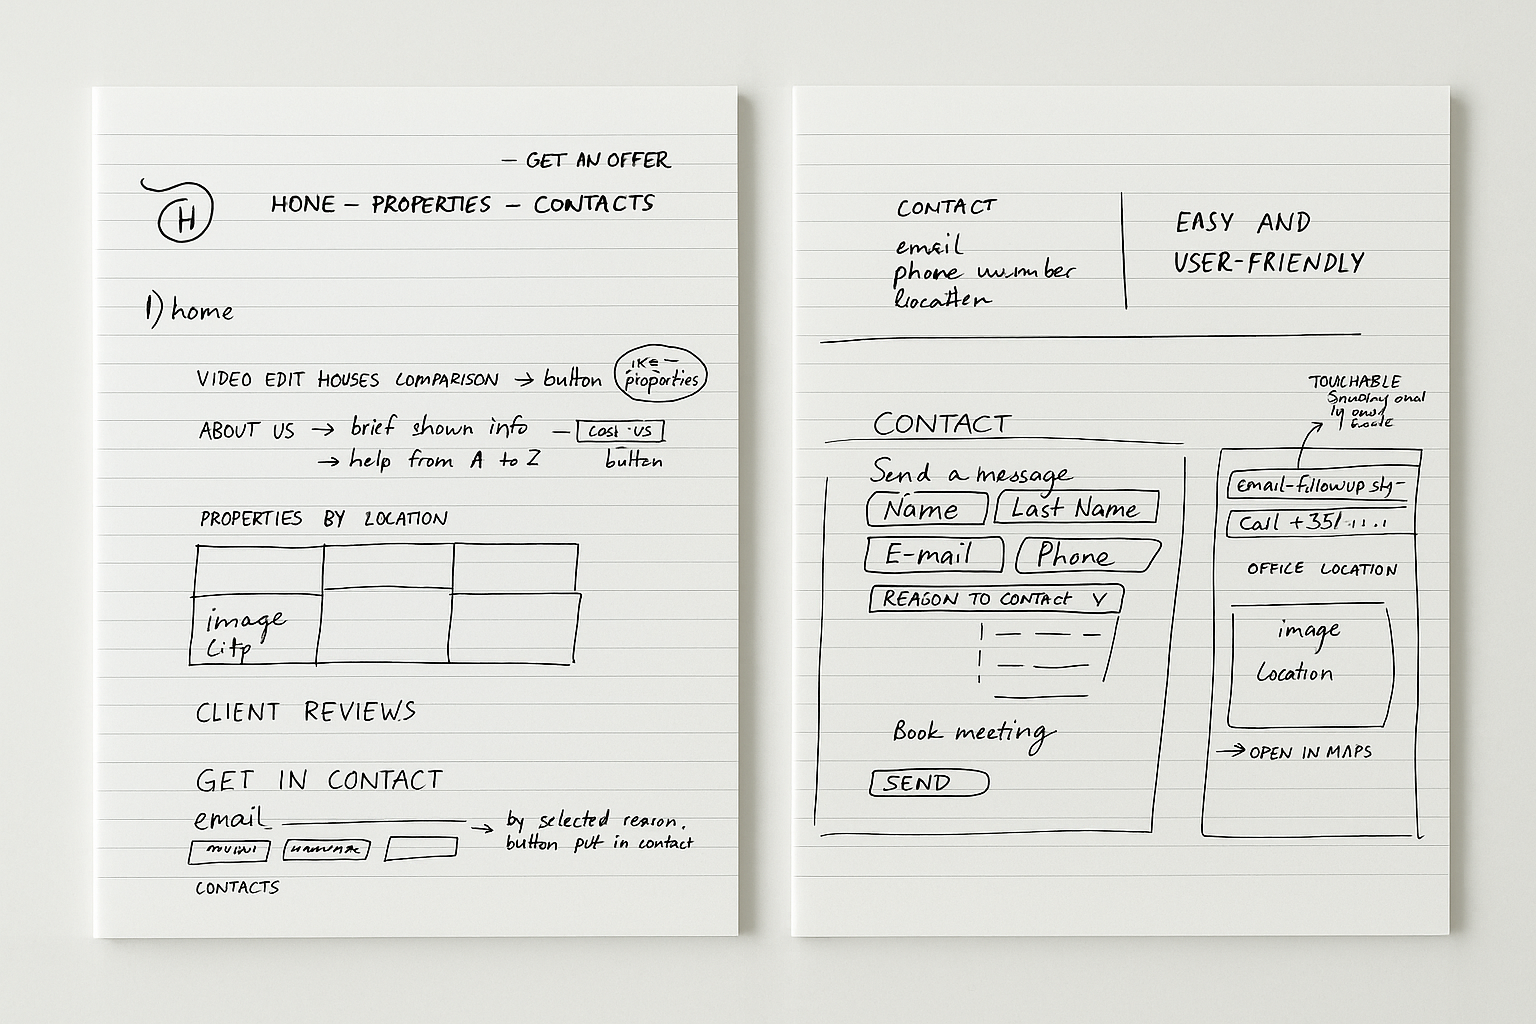 — GET AN OFFER
H
HONE — PROPERTIES — CONTACTS
1) home
VIDEO EDIT HOUSES COMPARISON → button
properties
ABOUT US → brief shown info — cost us
→ help from A to Z button
PROPERTIES BY LOCATION
image
CLIENT REVIEWS
GET IN CONTACT
email → by selected reason.
button put in contact
CONTACTS
CONTACT
email
phone
EASY AND
USER-FRIENDLY
TOUCHABLE
CONTACT
Send a message
Name Last Name
E-mail Phone
REASON TO CONTACT V
Book meeting
SEND
email-follow up
Call +351.....
OFFICE LOCATION
image
Location
→ OPEN IN MAPS